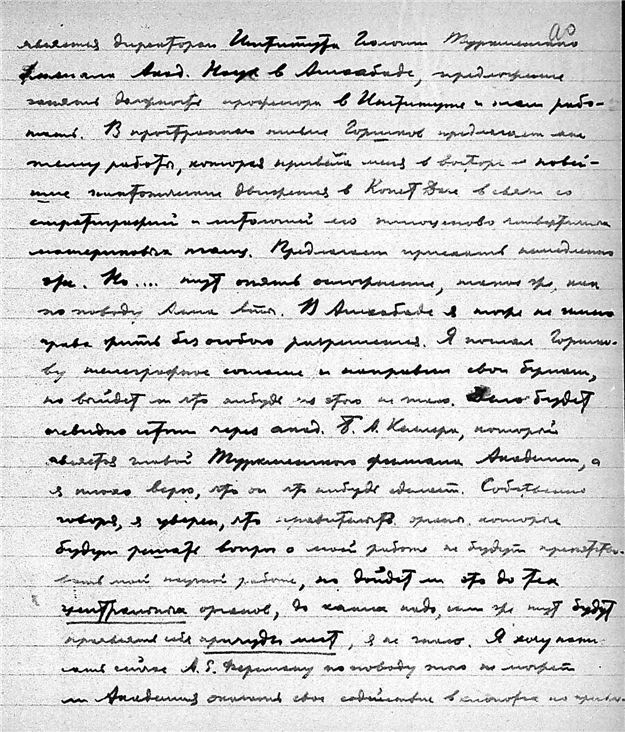 является директором Института Геологии Туркменского
филиала Акад. Наук в Ашхабаде, предложение
занять должность профессора в Институте и там рабо-
тать. В пространном письме Горшков предлагает мне
тему работы, которая привела меня в восторг - новей-
шие тектонические движения в Копет Даге в связи со
стратиграфией и литологией его плиоценово четвертичных
материковых толщ. Предлагает приехать немедленно
же. Но.... тут опять осложнение, такое же, как
по поводу Алма Аты. В Ашхабаде я тоже не имею
права жить без особого разрешения. Я послал Горшко-
ву телеграфное согласие и направил свои бумаги,
но выйдет ли что нибудь из этого не знаю. Дело будет
очевидно идти через акад. Б. А. Келлера, который
является главой Туркменского филиала Академии, а
я плохо верю, что он что нибудь сделает. Собственно
говоря, я уверен, что правительств. органы, которые
будут решать вопрос о моей работе не будут препятство-
вать моей научной работе, но дойдет ли это до тех
центральных органов, до каких надо, или же тут будут
проявлять себя причуды мест, я не знаю. Я хочу напи-
сать сейчас А. Е. Ферсману по поводу того не может
ли Академия оказать свое содействие